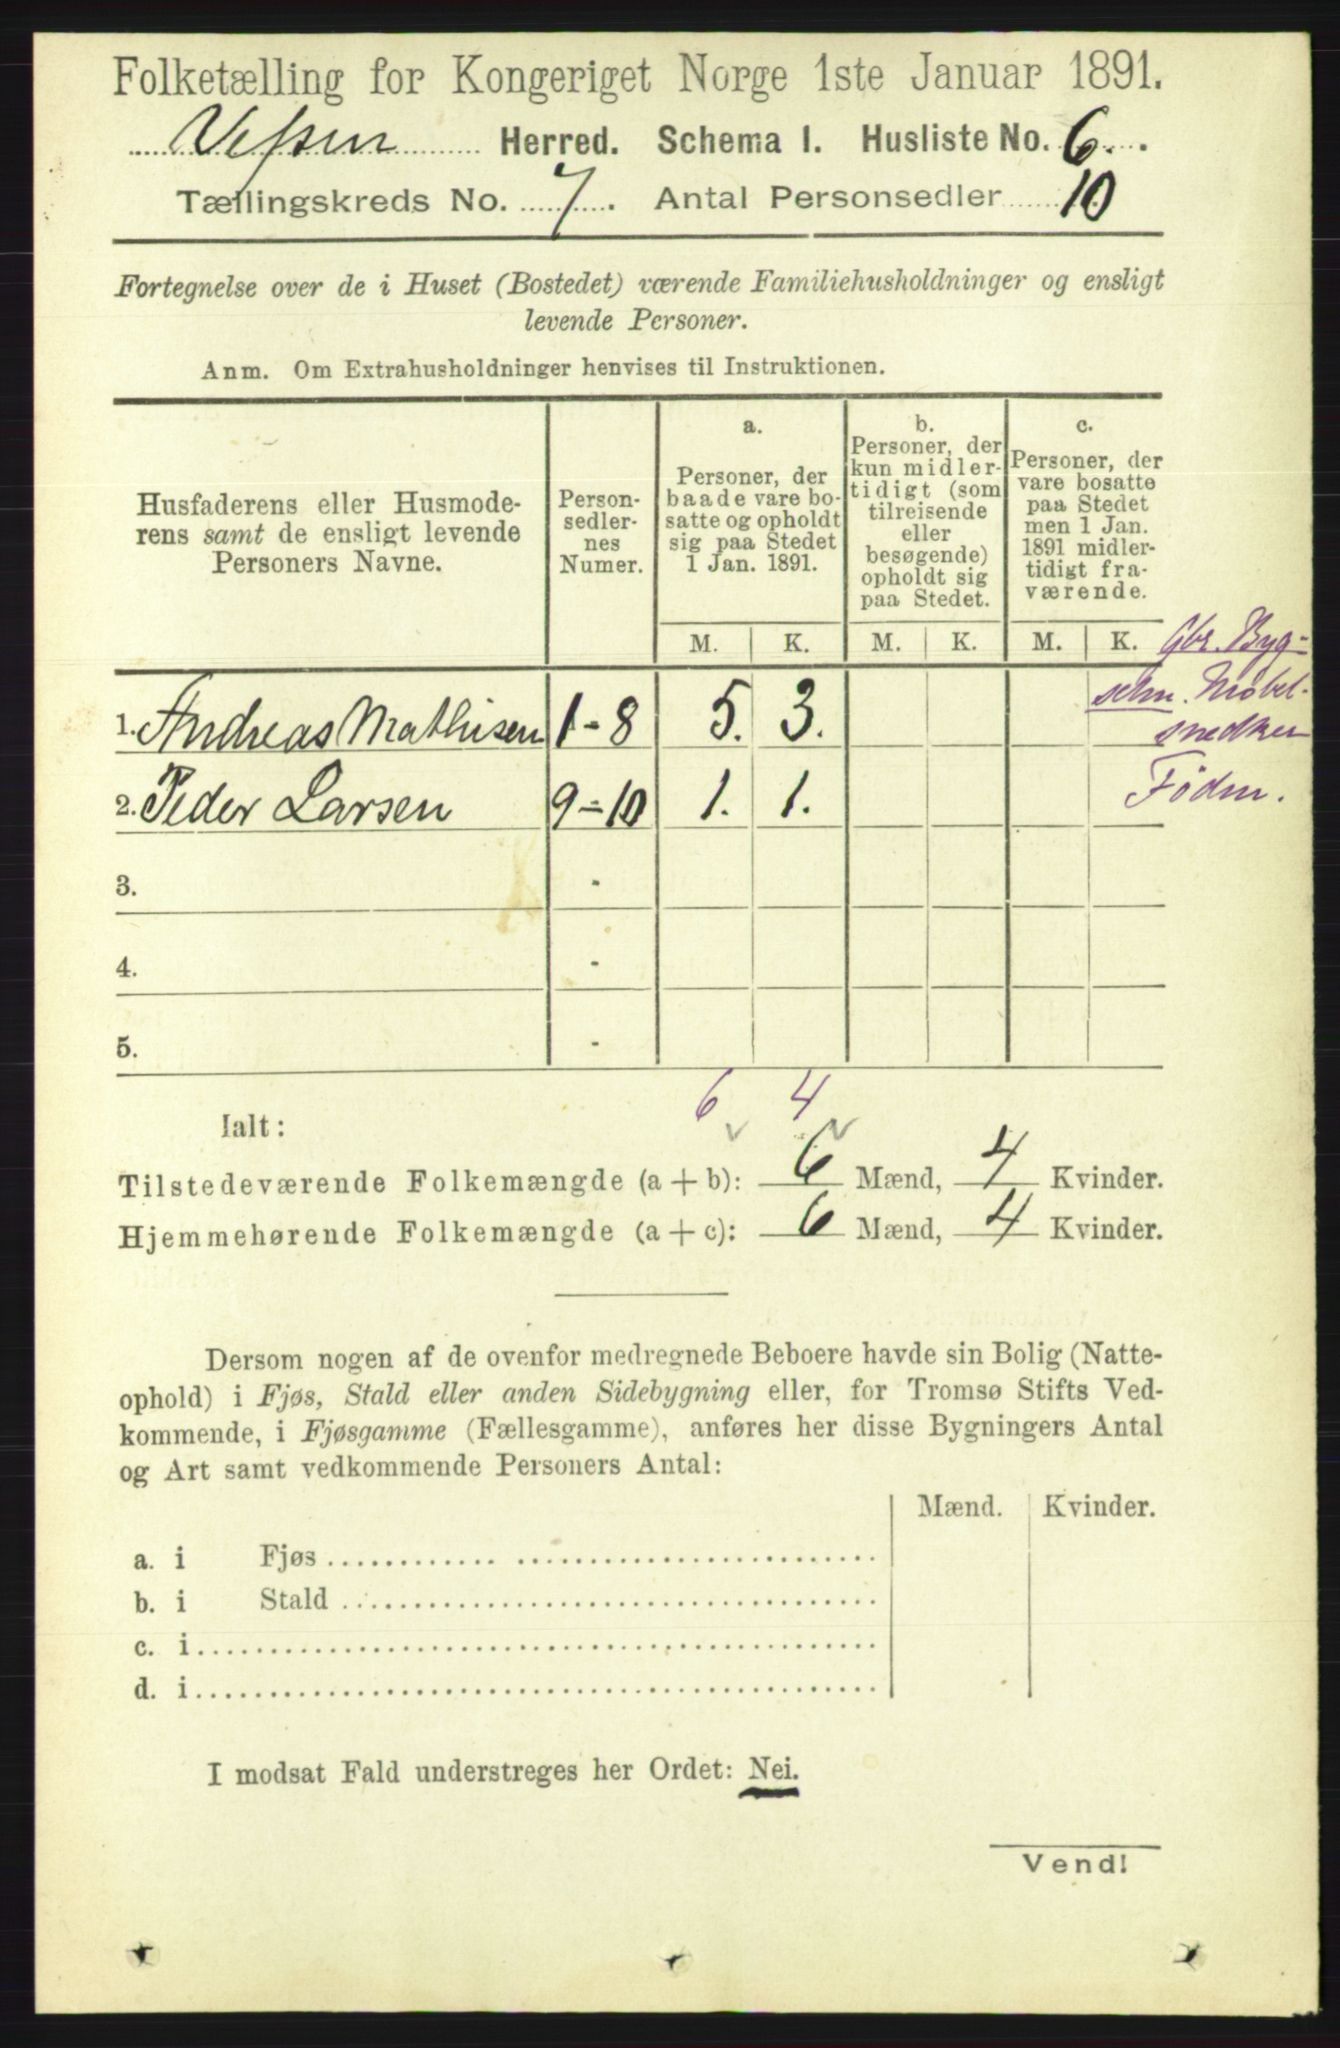 Folketælling for Kongeriget Norge 1ste Januar 1891.
Vefsen Herred. Schema I. Husliste No. 6.
Tællingskreds No. 7. Antal Personsedler 10
Fortegnelse over de i Huset (Bostedet) værende Familiehusholdninger og ensligt
levende Personer.
Anm. Om Extrahusholdninger henvises til Instruktionen.
Husfaderens eller Husmode-
rens samt de ensligt levende
Personers Navne.
Person-
sedler-
nes
Numer.
a.
Personer, der
baade vare bo-
satte og opholdt
sig paa Stedet
1 Jan. 1891.
b.
Personer, der
kun midler-
tidigt (som
tilreisende
eller
besøgende)
opholdt sig
paa Stedet.
c.
Personer, der
vare bosatte
paa Stedet
men 1 Jan.
1891 midler-
tidigt fra-
værende.
M. K. M. K. M. K.
Gbr. Byg-
selm. Møbel-
snedker
1. Andreas Mathisen 1-8 5. 3.
2. Peder Larsen 9-10 1. 1. Födm.
3. -
4. -
5. -
6 4
Ialt:
Tilstedeværende Folkemængde (a + b): 6 Mænd, 4 Kvinder.
Hjemmehørende Folkemængde (a + c): 6 Mænd, 4 Kvinder.
Dersom nogen af de ovenfor medregnede Beboere havde sin Bolig (Natte-
ophold) i Fjøs, Stald eller anden Sidebygning eller, for Tromsø Stifts Ved-
kommende, i Fjøsgamme (Fællesgamme), anføres her disse Bygningers Antal
og Art samt vedkommende Personers Antal:
Mænd. Kvinder.
a. i Fjøs
b. i Stald
c. i
d. i
I modsat Fald understreges her Ordet: Nei.
Vend!